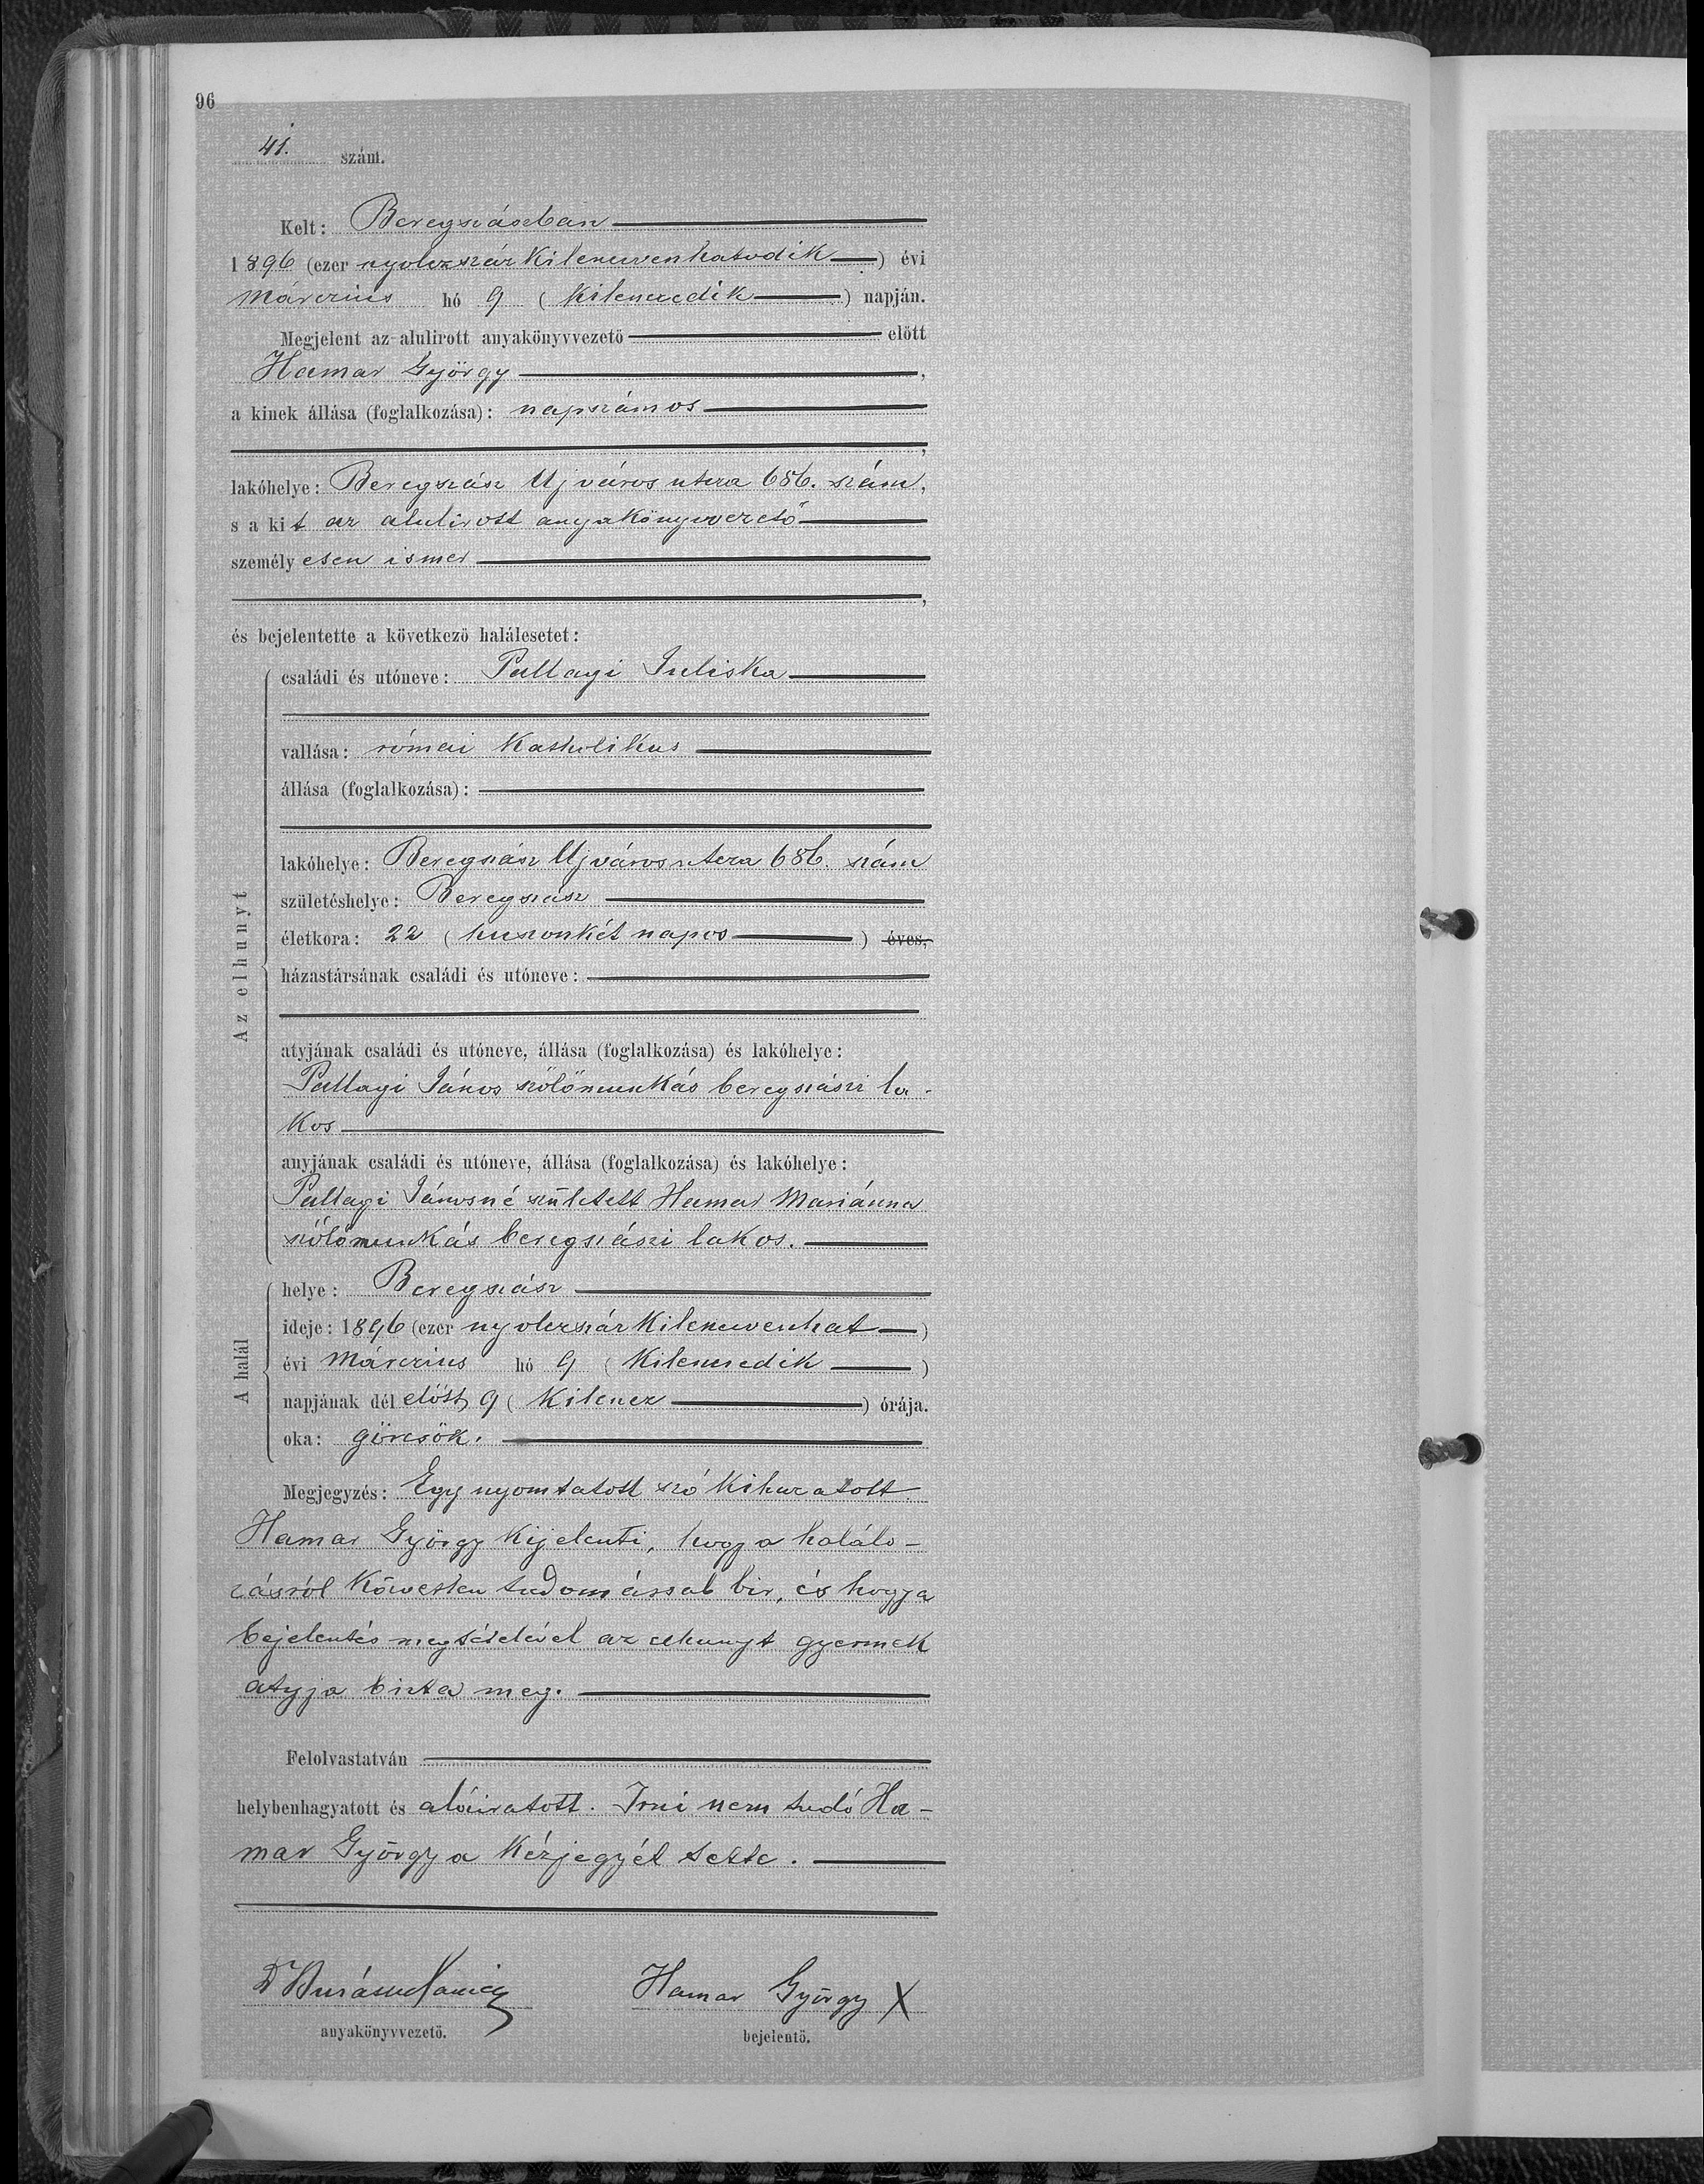 96
41. szám.
Kelt: Beregszászban
1896 (ezer nyolczszáz kilenczvenhatodik) évi
márczius hó 9 (kilenczedik) napján.
Megjelent az alulirott anyakönyvvezető előtt
Hamar György,
a kinek állása (foglalkozása): napszámos
,
lakóhelye: Beregszász Ujváros utcza 686. szám,
s a kit az alulirott anyakönyvvezető
személyesen ismer
,
és bejelentette a következő halálesetet:
Az elhunyt
családi és utóneve: Pallagi Juliska
vallása: római katholikus
állása (foglalkozása):
lakóhelye: Beregszász Ujváros utcza 686. szám
születéshelye: Beregszász
életkora: 22 (huszonkét napos) éves,
házastársának családi és utóneve:
atyjának családi és utóneve, állása (foglalkozása) és lakóhelye:
Pallagi János szőlőmunkás beregszászi la-
kos
anyjának családi és utóneve, állása (foglalkozása) és lakóhelye:
Pallagi Jánosné született Hamar Mariánna
szőlőmunkás beregszászi lakos.
A halál
helye: Beregszász
ideje: 1896 (ezer nyolczszáz kilenczvenhat)
évi márczius hó 9 (kilenczedik)
napjának délelőtt 9 (kilencz) órája.
oka: görcsök.
Megjegyzés: Egy nyomtatott szó kihuzatott.
Hamar György kijelenti, hogy a halálo-
zásról közvetlen tudomással bir, és hogy a
bejelentés megtételével az elhunyt gyermek
atyja bizta meg.
Felolvastatván
helybenhagyatott és aláiratott. Irni nem tudó Ha-
mar György a kézjegyét tette.
Hamar György X
anyakönyvvezető. bejelentő.